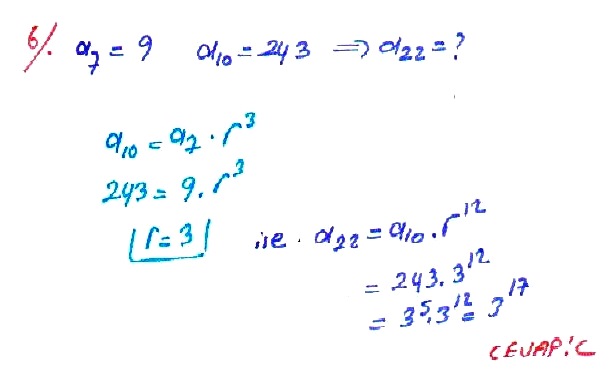 6/. a₇ = 9 a₁₀ = 243 ⇒ a₂₂ = ?
a₁₀ = a₇ · r³
243 = 9 · r³
r = 3 ise . a₂₂ = a₁₀ · r¹²
= 243 . 3¹²
= 3⁵ . 3¹² = 3¹⁷
CEVAP: C